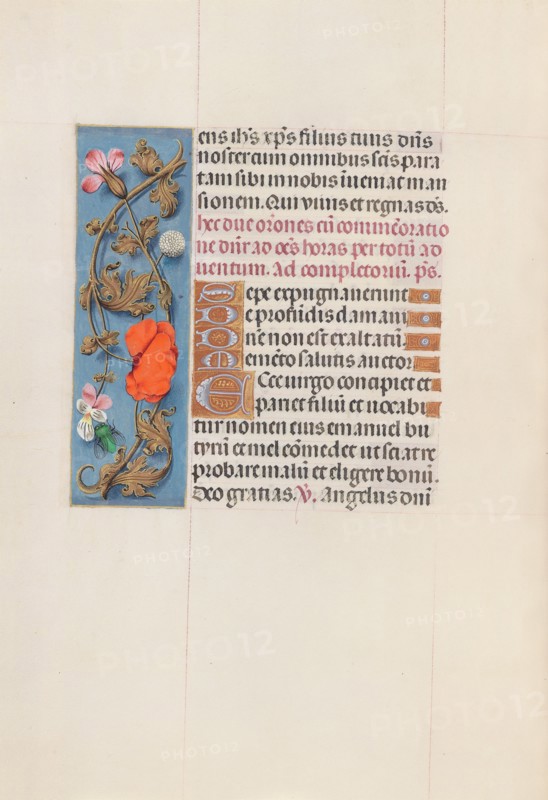 ens ih̄s xp̄s filius tuus dn̄s
noster cum omnibus sc̄is para
tam sibi in nobis īueniat man
sionem. Qui viuis et regnas ds̄.
hec due or̄ones cū cōmem̄oratio
ne dn̄r ad oēs horas per totū ad
uentum. Ad completoriū. ps̄.
Sepe expugnauerunt
De profūdis clamaui
Dn̄e non est exaltatū.
Memēto salutis auctor
Ecce uirgo concipiet et
pariet filiū et uocabi
tur nomen eius emanuel bu
tyrū et mel cōmedet ut sciat re
probare malū et eligere bonū.
Deo gratias. V̄. Angelus dn̄i
PHOTO12